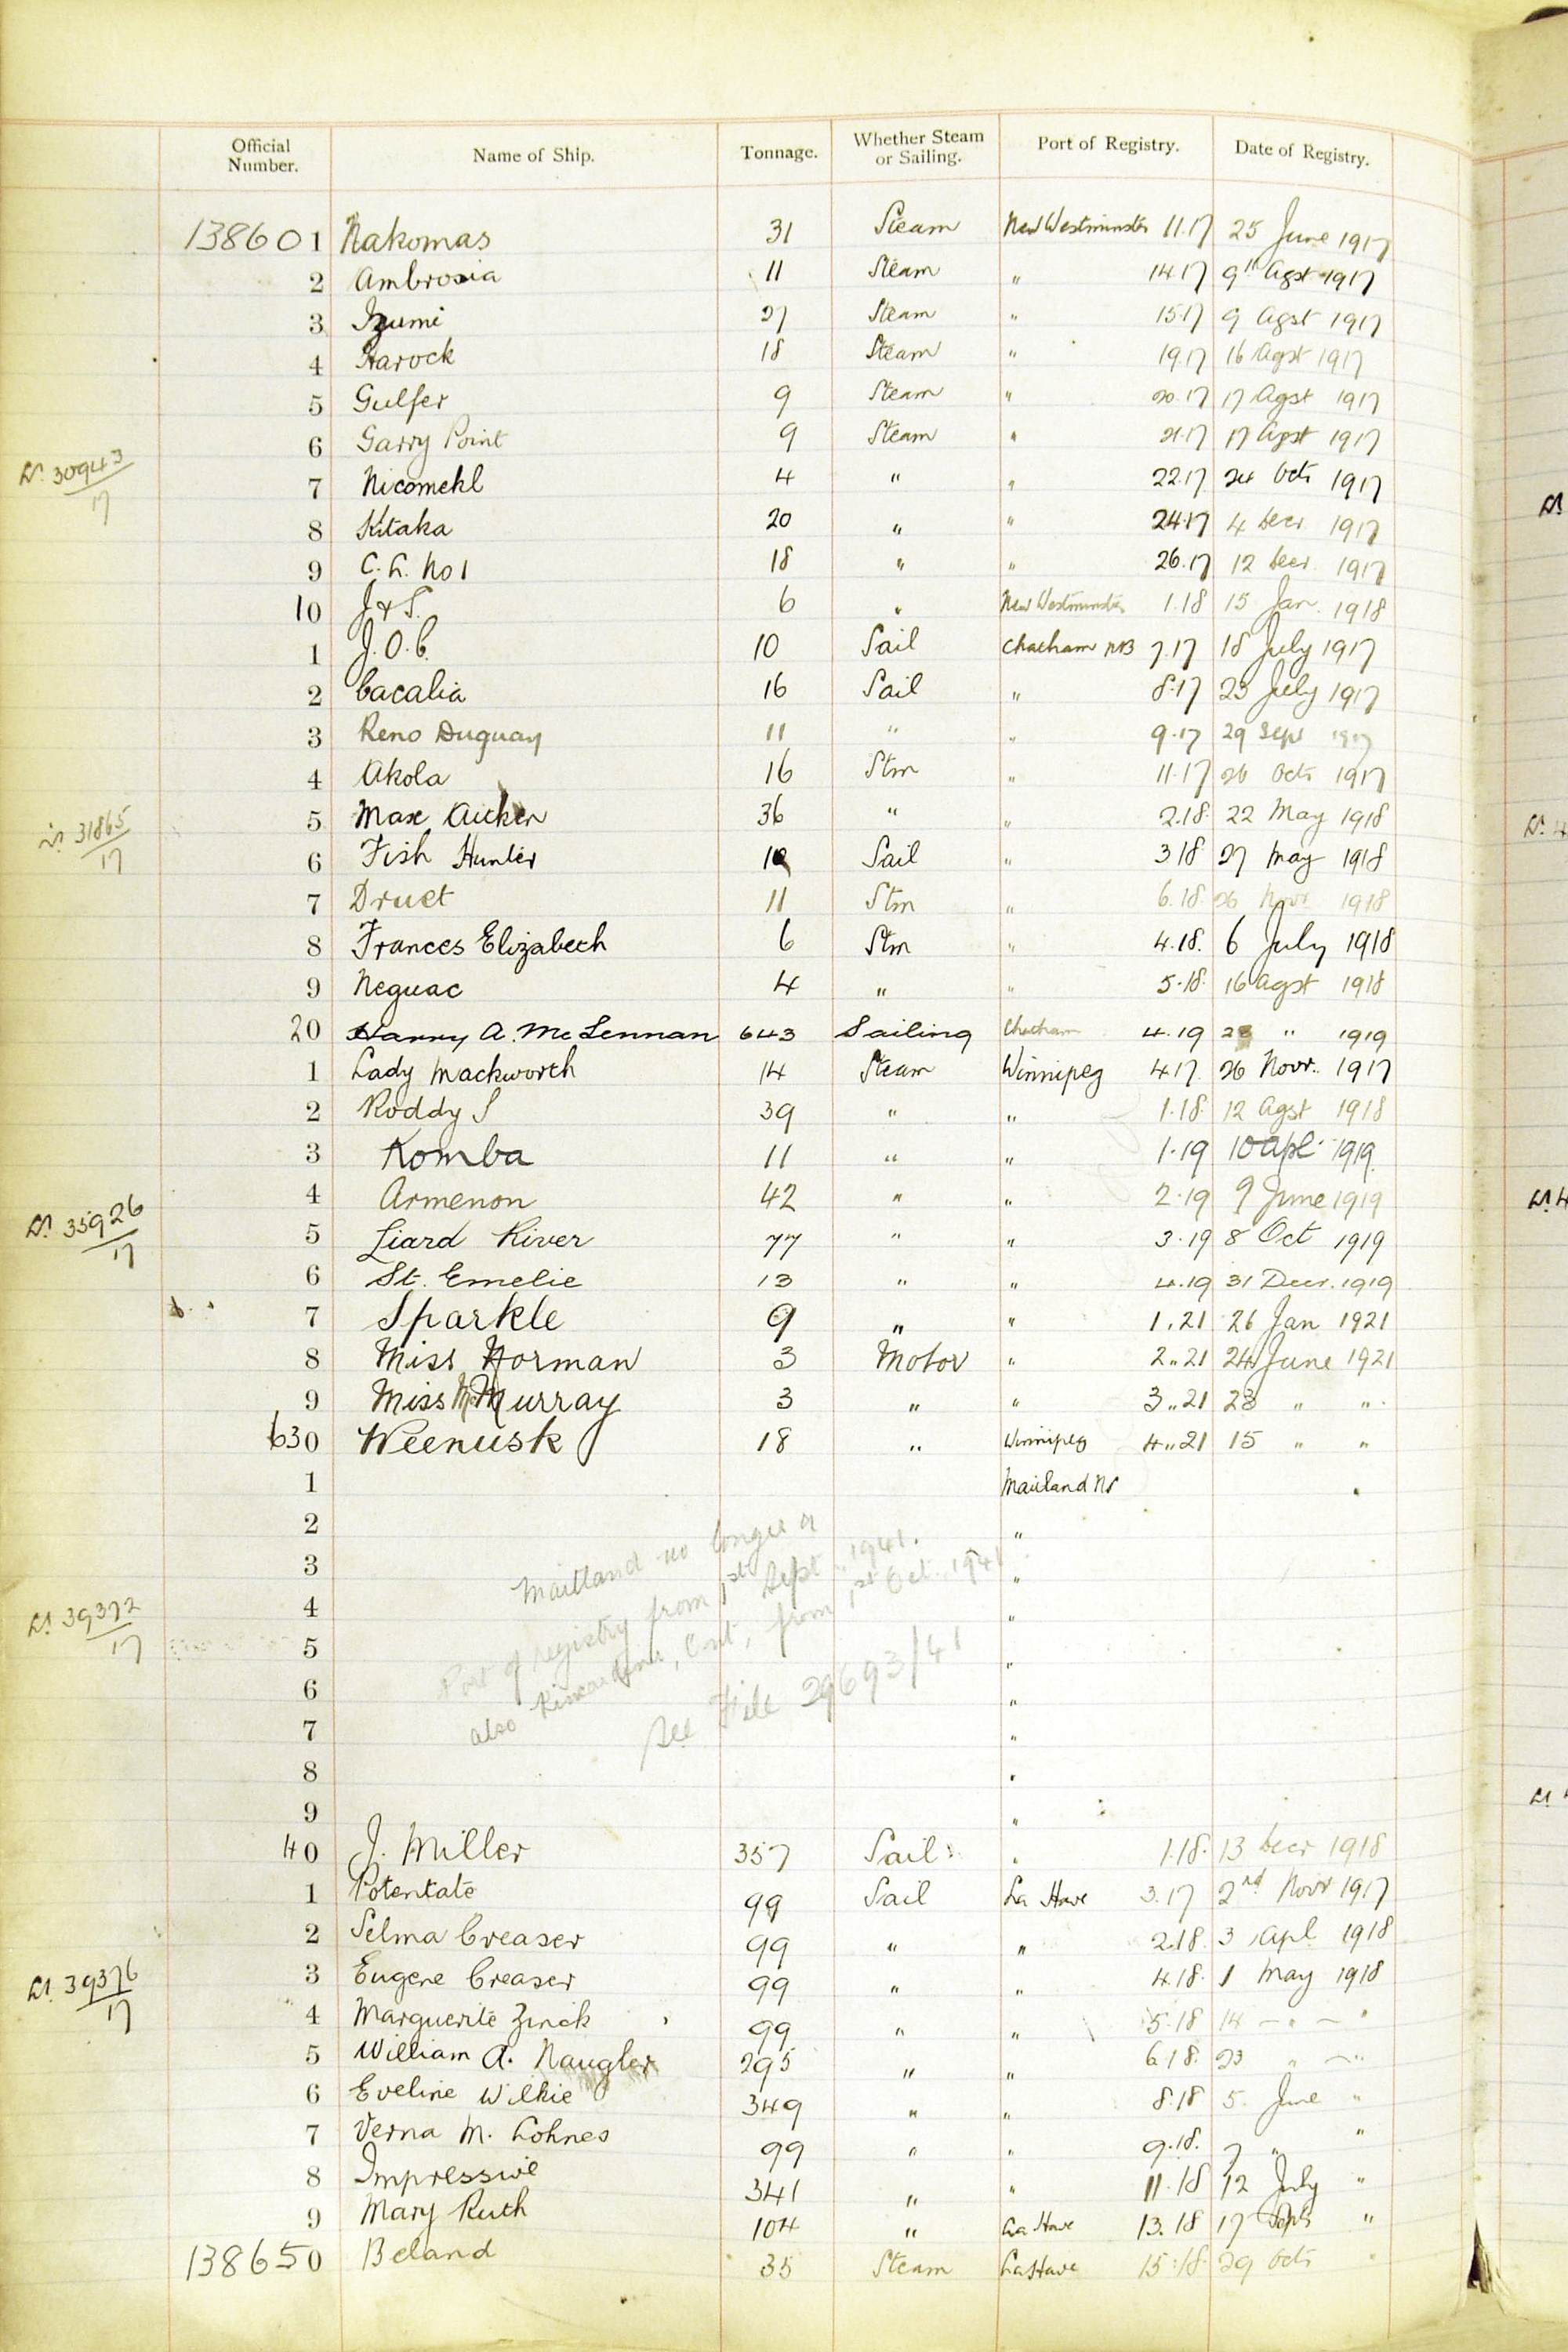 Official Number. Name of Ship. Tonnage. Whether Steam or Sailing. Port of Registry. Date of Registry.
138601 Nakomas 31 Steam New Westminster 11.17 25 June 1917
2 Ambrosia 11 Steam " 14.17 9th Agst 1917
3 Izumi 27 Steam " 15.17 9 Agst 1917
4 Harock 18 Steam " 19.17 16 Agst 1917
5 Gulfer 9 Steam " 20.17 17 Agst 1917
6 Garry Point 9 Steam " 21.17 17 Agst 1917
30943/17
7 Nicomekl 4 " " 22.17 24 Octr 1917
8 Kitaka 20 " " 24.17 4 Decr 1917
9 C.L. No 1 18 " " 26.17 12 Decr 1917
10 J & S. 6 " New Westminster 1.18 15 Jan. 1918
1 J.O.C. 10 Sail Chatham NB 7.17 18 July 1917
2 Cacalia 16 Sail " 8.17 23 July 1917
3 Reno Duguay 11 " " 9.17 29 Sept 1917
4 Akola 16 Stm " 11.17 26 Octr 1917
5 Max Aitken 36 " " 2.18. 22 May 1918
31865/17
6 Fish Hunter Sail " 3 18 27 May 1918
7 Druet 11 Stm " 6.18. 26 Novr 1918
8 Frances Elizabeth 6 Stm " 4.18. 6 July 1918
9 Neguac 4 " " 5.18. 16 Agst 1918
20 Harry A. McLennan 643 Sailing Chatham 4.19 28 " 1919
1 Lady Mackworth 14 Steam Winnipeg 4.17. 26 Novr. 1917
2 Roddy S 39 " " 1.18. 12 Agst 1918
3 Komba 11 " " 1.19 10 Apl. 1919.
4 Armenon 42 " " 2.19 9 June 1919
35926/17
5 Liard River 77 " " 3.19 8 Oct 1919
6 St. Emelie 13 " " 4.19 31 Decr. 1919
7 Sparkle 9 " " 1.21 26 Jan 1921
8 Miss Norman 3 Motor " 2..21 24 June 1921
9 Miss McMurray 3 " " 3..21 23 " "
630 Weenusk 18 " Winnipeg 4..21 15 " "
1 Maitland NS
2 "
3 "
4 "
39372/17
5 "
6 "
7 "
8 "
9 "
Maitland no longer a
Port of registry from 1st Sept. 1941.
also Kincardine, Ont, from 1st Oct. 1941
See File 29693/41
40 J. Miller 357 Sail " 1.18. 13 Decr 1918
1 Potentate 99 Sail La Have 3.17 2nd Novr 1917
2 Selma Creaser 99 " " 2.18. 3 Apl 1918
3 Eugene Creaser 99 " " 4.18. 1 May 1918
39376/17
4 Marguerite Zinck 99 " " 5.18 14 " "
5 William A. Naugler 295 " " 6.18. 23 " "
6 Eveline Wilkie 349 " " 8.18 5. June "
7 Verna M. Lohnes 99 " " 9.18. 7 " "
8 Impressive 341 " " 11.18 12 July "
9 Mary Ruth 104 " La Have 13.18 17 Sept "
138650 Beland 35 Steam La Have 15.18. 29 Octr "